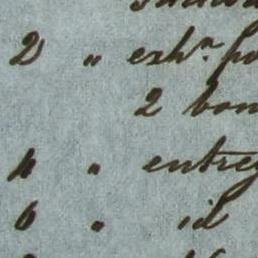 2 " exhn. po
2 bon
4 " entreg
6 " id